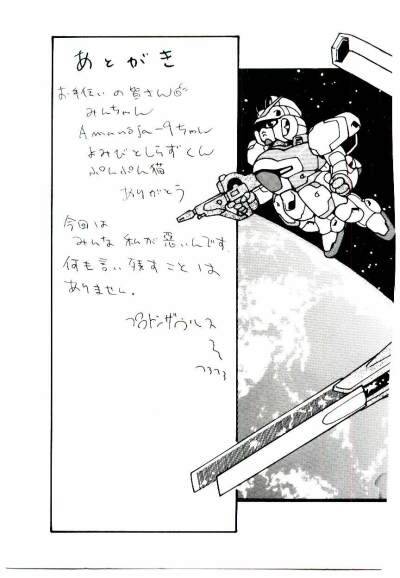 あとがき
お手伝いの皆さん
みんちゃん
Amanosa-9ちゃん
よみびとしらずくん
ぷんぷん猫
ありがとう
今回は
みんな私が悪いんです
何も言い残すことは
ありません。